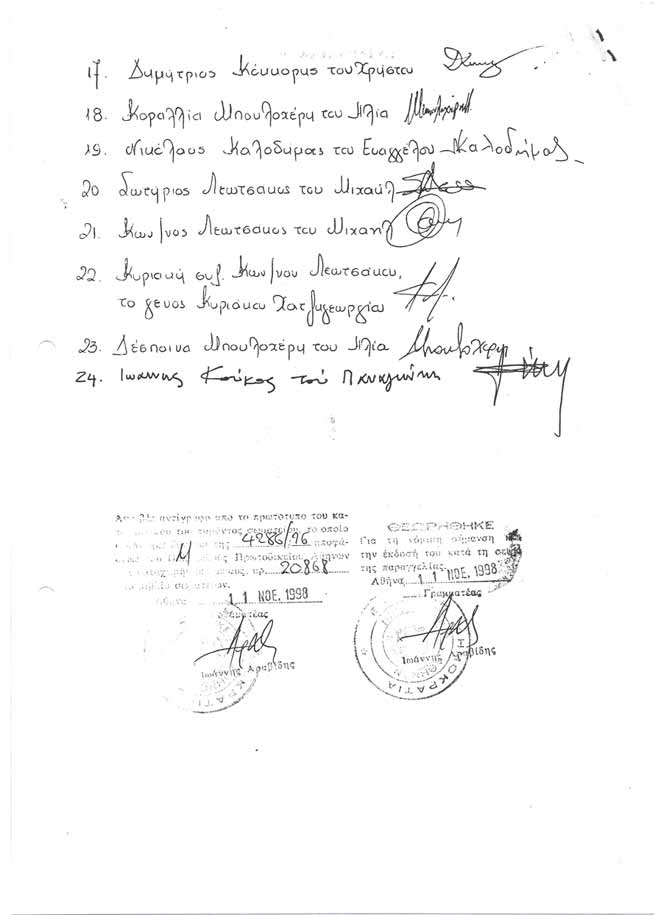 17. Δημήτριος Κέννορης του Χρήστου
18. Κοραλλία Μπουλοχέρη του Ηλία
19. Νικόλαος Καλοδήμας του Ευαγγέλου Καλοδήμας
20 Σωτήριος Λεωτσακος του Μιχαήλ
21. Κων/νος Λεωτσάκος του Μιχαήλ
22. Κυριακή συζ. Κων/νου Λεωτσακου,
το γένος Κυριάκου Χατζηγεωργίου
23. Δέσποινα Μπουλοχέρη του Ηλία
24. Ιωαννης Κούκος τού Παναγιώτη
αντίγραφο από το πρωτότυπο του κα-
του παρόντος σωματείου, το οποίο
της 4286/96 αποφά-
Πρωτοδικείου Αθηνών
αρ. 20868
11 ΝΟΕ. 1998
Ιωάννης Αραβίδης
ΘΕΩΡΗΘΗΚΕ
Για τη νόμιμη σήμανση
την έκδοσή του κατά τη σειρά
της παραγγελίας.
Αθήνα 11 ΝΟΕ. 1998
Γραμματέας
Ιωάννης Αραβίδης